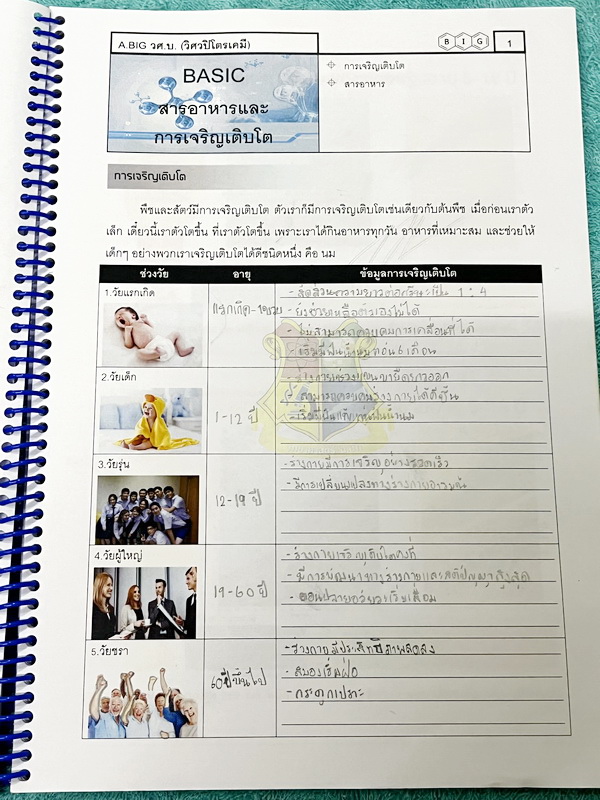 A.BIG วศ.บ. (วิศวปิโตรเคมี)
B I G
1
BASIC
สารอาหารและ
การเจริญเติบโต
การเจริญเติบโต
สารอาหาร
การเจริญเติบโต
พืชและสัตว์มีการเจริญเติบโต ตัวเราก็มีการเจริญเติบโตเช่นเดียวกับต้นพืช เมื่อก่อนเราตัว
เล็ก เดี๋ยวนี้เราตัวโตขึ้น ที่เราตัวโตขึ้น เพราะเราได้กินอาหารทุกวัน อาหารที่เหมาะสม และช่วยให้
เด็กๆ อย่างพวกเราเจริญเติบโตได้ดีชนิดหนึ่ง คือ นม
ช่วงวัย อายุ ข้อมูลการเจริญเติบโต
1.วัยแรกเกิด
แรกเกิด-1ขวบ
เป็น 1 : 4
- ยังช่วยเหลือตัวเองไม่ได้
- ไม่สามารถควบคุมการเคลื่อนที่ได้
- เริ่มมีฟันน้ำนมตอน 6 เดือน
2.วัยเด็ก
1-12 ปี
- ร่างกายช่วงแขนขายืดยาวออก
- สามารถควบคุมร่างกายได้ดีขึ้น
- เริ่มมีฟันแท้แทนฟันน้ำนม
3.วัยรุ่น
12-19 ปี
- ร่างกายมีการเจริญอย่างรวดเร็ว
- มีการเปลี่ยนแปลงทางร่างกายอารมณ์
4.วัยผู้ใหญ่
19-60 ปี
- ร่างกายเจริญเติบโตคงที่
- มีการพัฒนาทางร่างกายและสติปัญญาสูงสุด
- ตอนปลายอวัยวะเริ่มเสื่อม
5.วัยชรา
60ปีขึ้นไป
- ร่างกายมีประสิทธิภาพลดลง
- สมองเริ่มฝ่อ
- กระดูกเปราะ